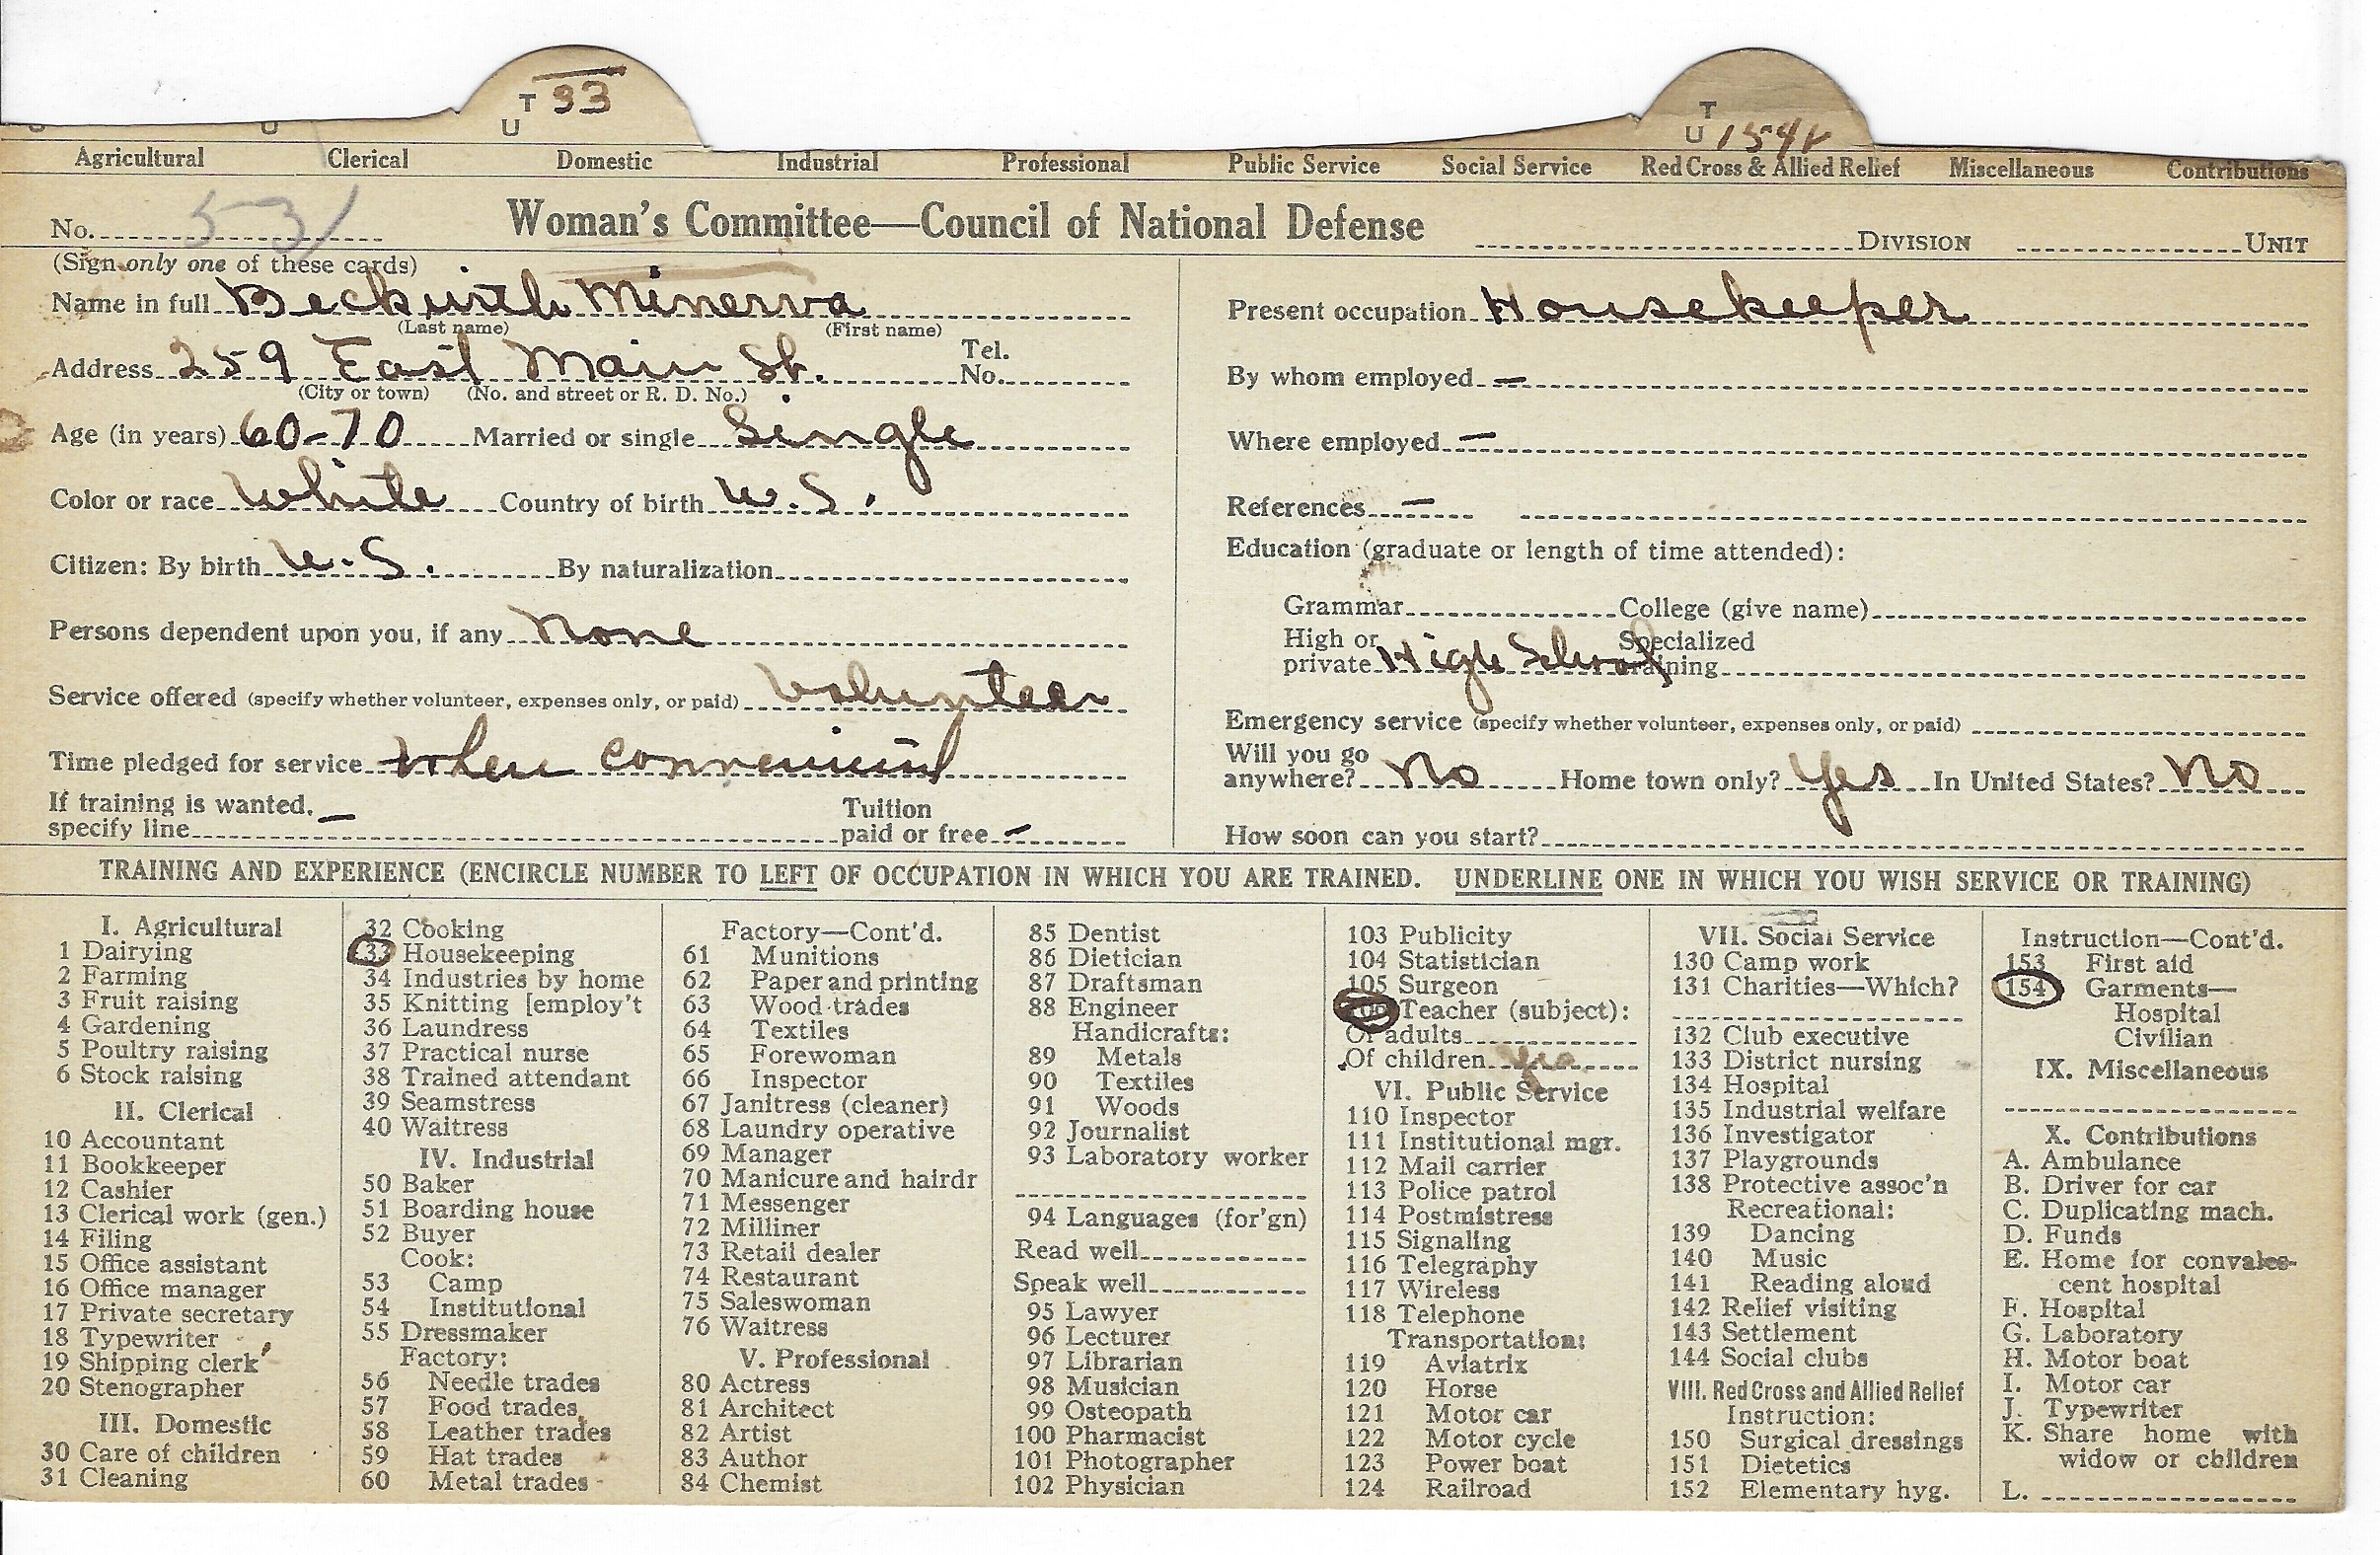 T 33
U
T
U 154V
Agricultural Clerical Domestic Industrial Professional Public Service Social Service Red Cross & Allied Relief Miscellaneous Contributions
No. 531
Woman's Committee—Council of National Defense
DIVISION UNIT
(Sign only one of these cards)
Name in full Beckwith Minerva
(Last name) (First name)
Address 259 East Main St. Tel. No.
(City or town) (No. and street or R. D. No.)
Age (in years) 60-70 Married or single Single
Color or race White Country of birth U.S.
Citizen: By birth U.S. By naturalization
Persons dependent upon you, if any None
Service offered (specify whether volunteer, expenses only, or paid) Volunteer
Time pledged for service when convenient
If training is wanted, specify line — Tuition paid or free —
Present occupation Housekeeper
By whom employed —
Where employed —
References —
Education (graduate or length of time attended):
Grammar College (give name)
High or private High School Specialized training
Emergency service (specify whether volunteer, expenses only, or paid)
Will you go anywhere? No Home town only? Yes In United States? No
How soon can you start?
TRAINING AND EXPERIENCE (ENCIRCLE NUMBER TO LEFT OF OCCUPATION IN WHICH YOU ARE TRAINED. UNDERLINE ONE IN WHICH YOU WISH SERVICE OR TRAINING)
I. Agricultural
1 Dairying
2 Farming
3 Fruit raising
4 Gardening
5 Poultry raising
6 Stock raising
II. Clerical
10 Accountant
11 Bookkeeper
12 Cashier
13 Clerical work (gen.)
14 Filing
15 Office assistant
16 Office manager
17 Private secretary
18 Typewriter
19 Shipping clerk
20 Stenographer
III. Domestic
30 Care of children
31 Cleaning
32 Cooking
33 Housekeeping
34 Industries by home
35 Knitting [employ't
36 Laundress
37 Practical nurse
38 Trained attendant
39 Seamstress
40 Waitress
IV. Industrial
50 Baker
51 Boarding house
52 Buyer
Cook:
53 Camp
54 Institutional
55 Dressmaker
Factory:
56 Needle trades
57 Food trades
58 Leather trades
59 Hat trades
60 Metal trades
Factory—Cont'd.
61 Munitions
62 Paper and printing
63 Wood trades
64 Textiles
65 Forewoman
66 Inspector
67 Janitress (cleaner)
68 Laundry operative
69 Manager
70 Manicure and hairdr
71 Messenger
72 Milliner
73 Retail dealer
74 Restaurant
75 Saleswoman
76 Waitress
V. Professional
80 Actress
81 Architect
82 Artist
83 Author
84 Chemist
85 Dentist
86 Dietician
87 Draftsman
88 Engineer
Handicrafts:
89 Metals
90 Textiles
91 Woods
92 Journalist
93 Laboratory worker
94 Languages (for'gn)
Read well
Speak well
95 Lawyer
96 Lecturer
97 Librarian
98 Musician
99 Osteopath
100 Pharmacist
101 Photographer
102 Physician
103 Publicity
104 Statistician
105 Surgeon
106 Teacher (subject):
Of adults
Of children yes
VI. Public Service
110 Inspector
111 Institutional mgr.
112 Mail carrier
113 Police patrol
114 Postmistress
115 Signaling
116 Telegraphy
117 Wireless
118 Telephone
Transportation:
119 Aviatrix
120 Horse
121 Motor car
122 Motor cycle
123 Power boat
124 Railroad
VII. Social Service
130 Camp work
131 Charities—Which?
132 Club executive
133 District nursing
134 Hospital
135 Industrial welfare
136 Investigator
137 Playgrounds
138 Protective assoc'n
Recreational:
139 Dancing
140 Music
141 Reading aloud
142 Relief visiting
143 Settlement
144 Social clubs
VIII. Red Cross and Allied Relief
Instruction:
150 Surgical dressings
151 Dietetics
152 Elementary hyg.
Instruction—Cont'd.
153 First aid
154 Garments—
Hospital
Civilian
IX. Miscellaneous
X. Contributions
A. Ambulance
B. Driver for car
C. Duplicating mach.
D. Funds
E. Home for convales-
cent hospital
F. Hospital
G. Laboratory
H. Motor boat
I. Motor car
J. Typewriter
K. Share home with
widow or children
L.